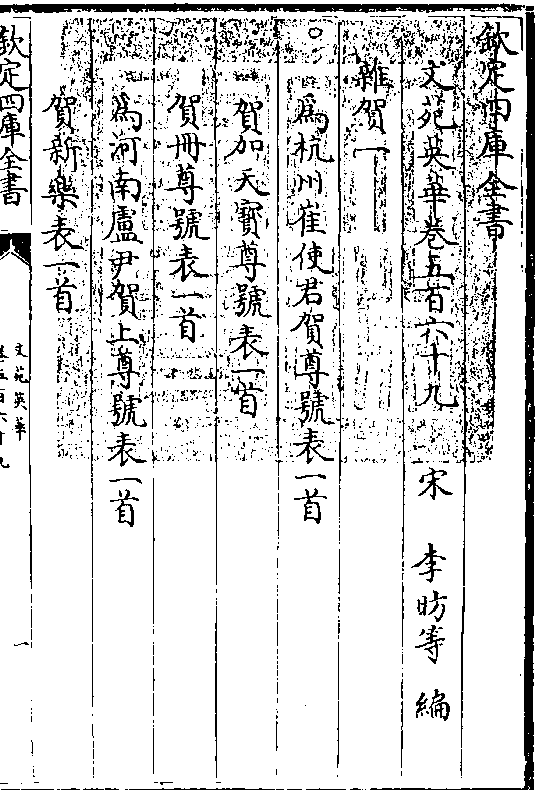 欽定四庫全書
文苑英華卷五百六十九　宋　李昉等　編
雜賀一
為杭州崔使君賀尊號表一首
賀加天寳尊號表一首
賀冊尊號表一首
為河南盧尹賀上尊號表一首
賀新樂表一首
欽定四庫全書
文苑英華
卷五百六十九
一